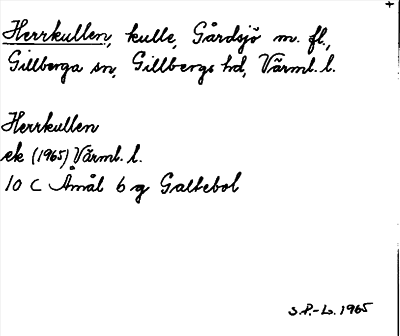 Herrkullen, kulle, Gårdsjö m. fl.,
Gillberga sn, Gillbergs hd, Värml. l.
Herrkullen
ek (1965) Värml. l.
10 C Åmål 6 g Galtebol
S.P.-L. 1965